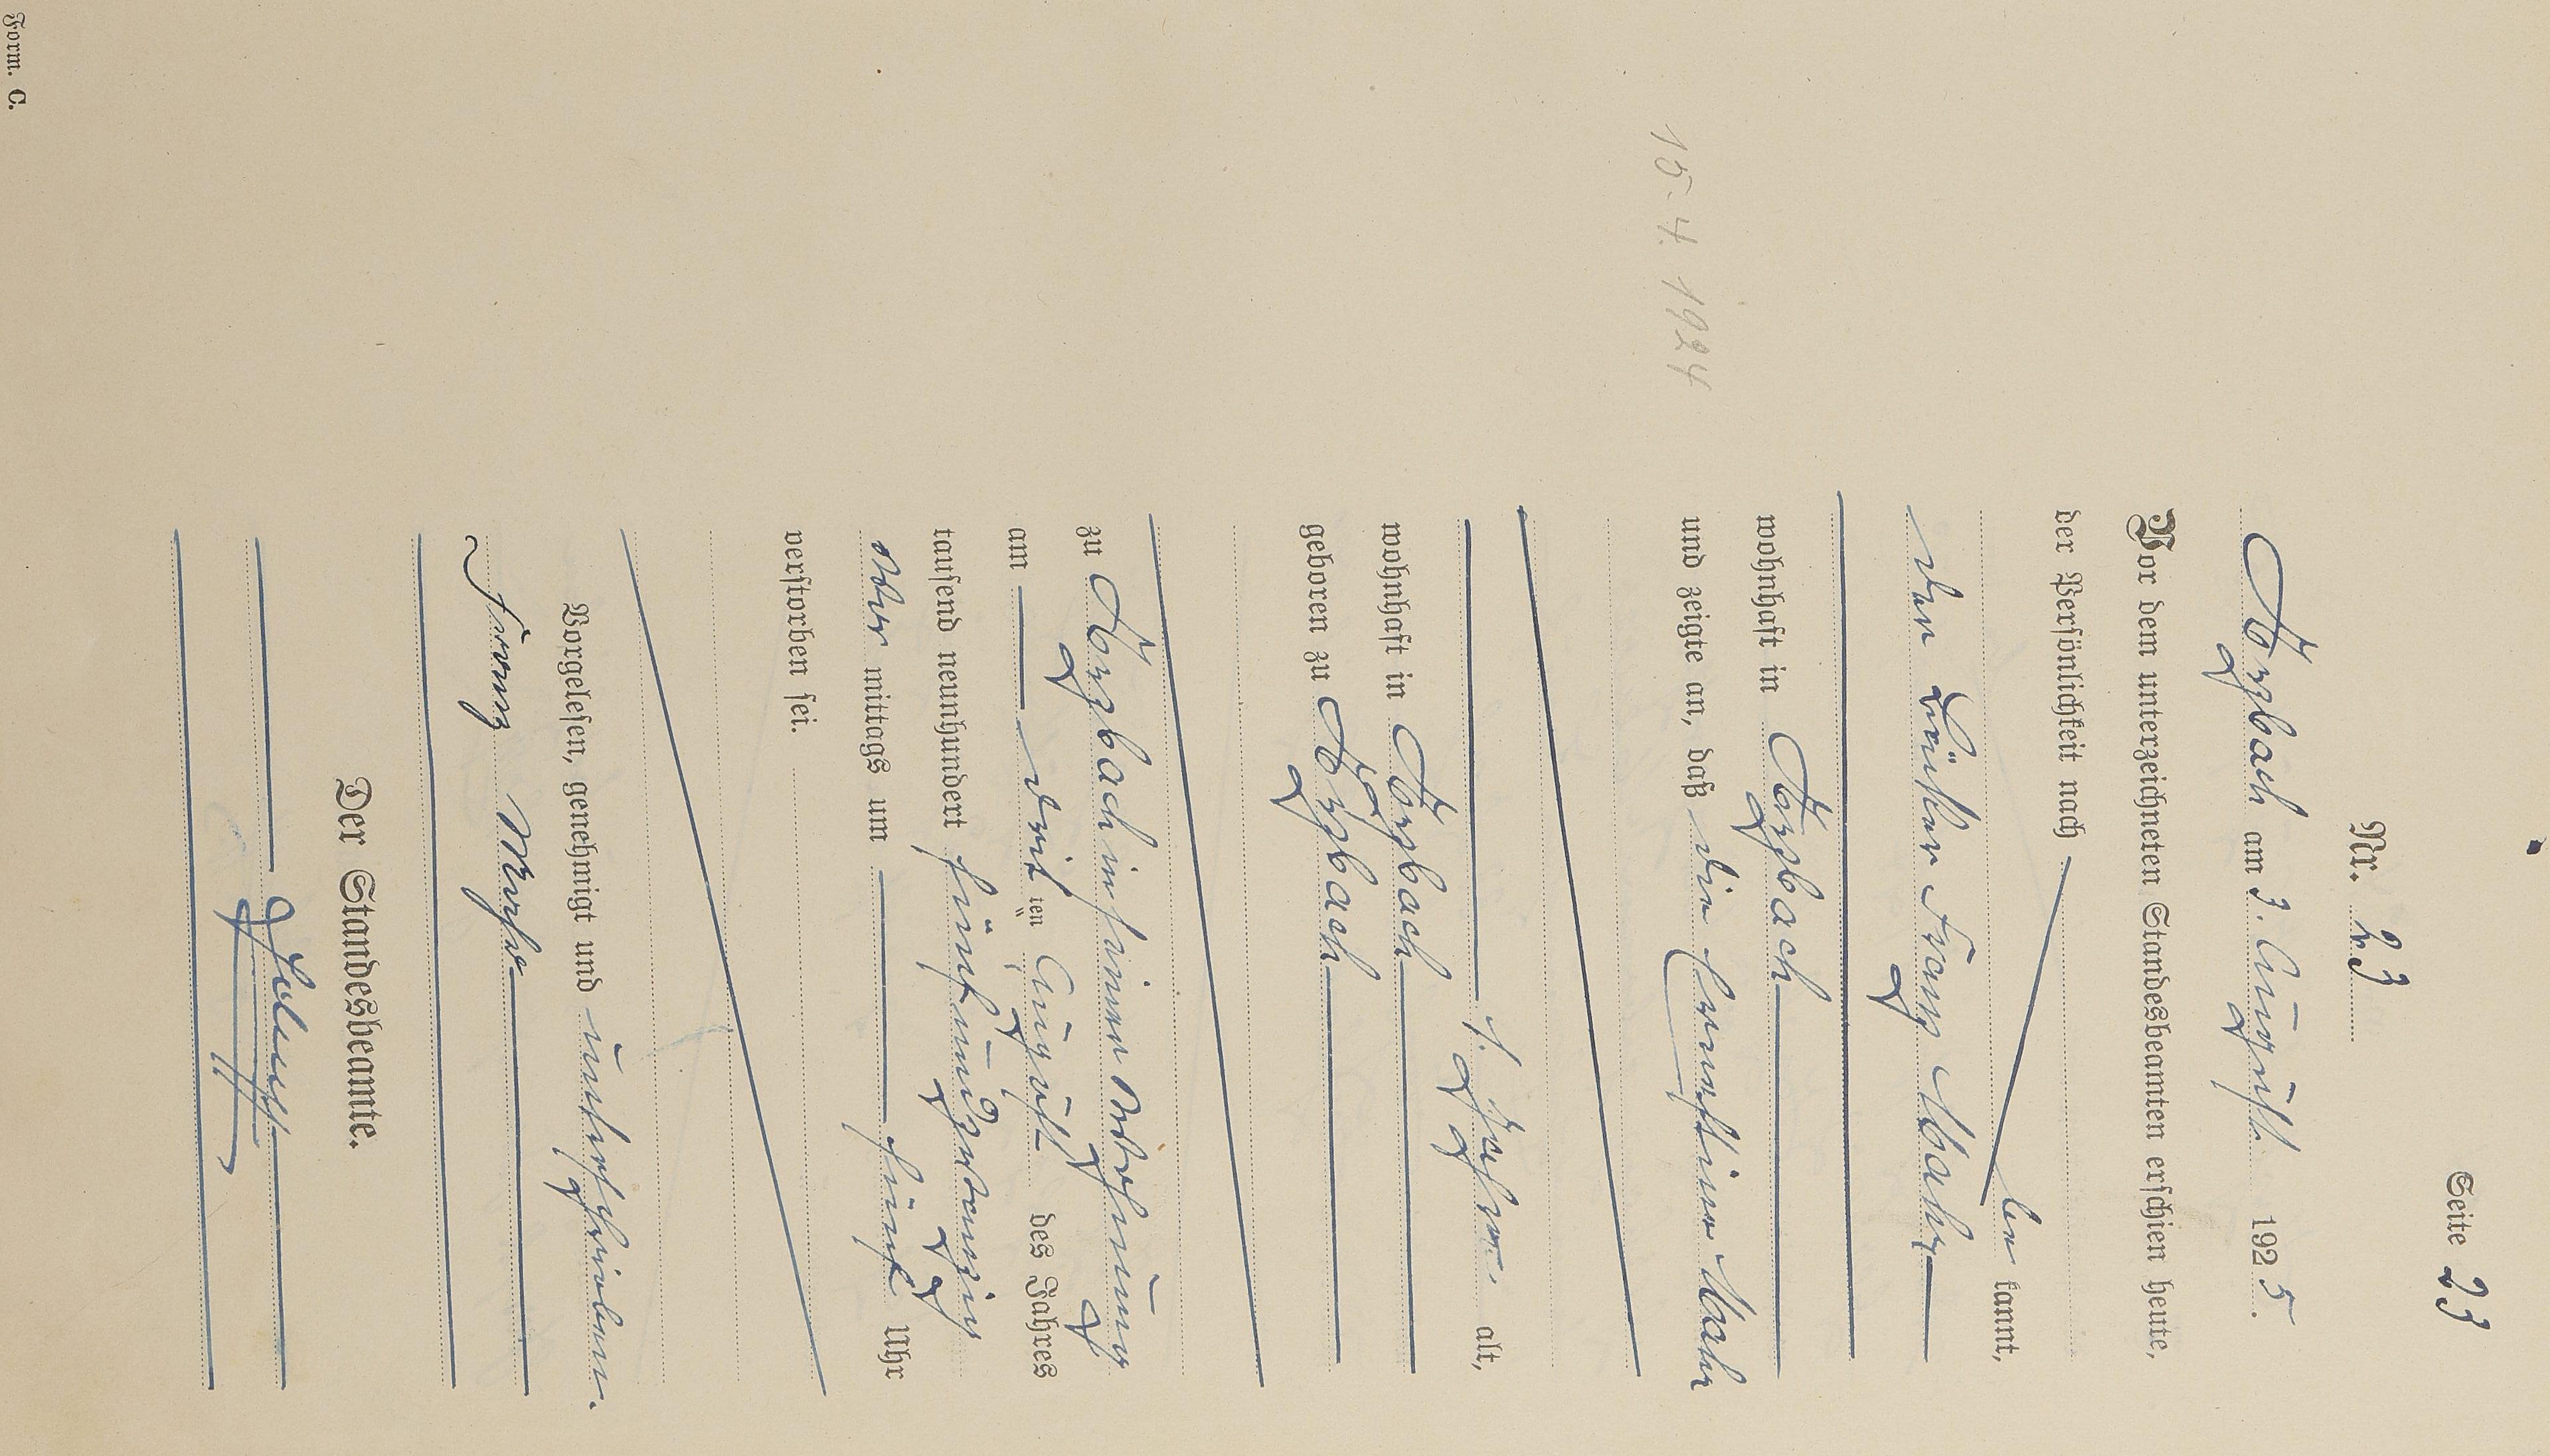 Seite 23
Nr. 23
Atzbach am 3. August 1925.
Vor dem unterzeichneten Standesbeamten erschien heute,
der Persönlichkeit nach
be kannt,
der Franz Mahr
wohnhaft in Atzbach
und zeigte an, daß die Ernestine Mahr
15. 4. 1924
1. Jahre alt,
wohnhaft in Atzbach
geboren zu Atzbach
zu Atzbach in seiner Wohnung
am drit ten August des Jahres
tausend neunhundert fünfundzwanzig
vor mittags um fünf Uhr
verstorben sei.
Vorgelesen, genehmigt und unterschrieben.
Franz
Der Standesbeamte.
Form. C.